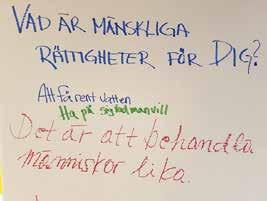 VAD ÄR MÄNSKLIGA
RÄTTIGHETER FÖR DIG?
Att få rent vatten
Ha på sig vad man vill
Det är att behandla
människor lika.